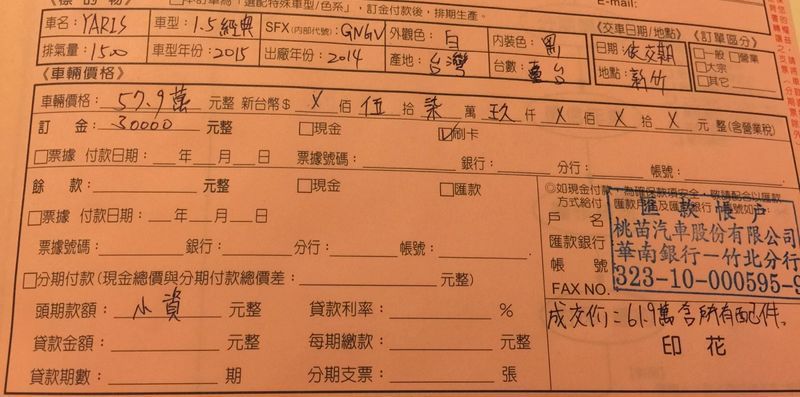 「選配特殊車型/色系」,訂金付款後,排期生產。
E-mail:
車名: YARIS 車型: 1.5經典 SFX(內部代號): GNGV 外觀色: 白 內裝色: 黑
《交車日期/地點》 《訂單區分》
排氣量: 1500 車型年份: 2015 出廠年份: 2014 產地: 台灣 台數: 壹台
日期: 依交期 □一般 □營業
地點: 新竹 □大宗
□其它
《車輛價格》
車輛價格: 57.9萬 元整 新台幣$ X 佰 伍 拾 柒 萬 玖 仟 X 佰 X 拾 X 元 整(含營業稅)
訂 金: 30000 元整 □現金 ☑刷卡
□票據 付款日期: 年 月 日 票據號碼: 銀行: 分行: 帳號:
餘 款: 元整 □現金 □匯款
◎如現金付款,為確保款項安全,敬請配合以匯款
方式給付
□票據 付款日期: 年 月 日
票據號碼: 銀行: 分行: 帳號:
戶 名
匯款銀行
帳 號
FAX NO.
匯款帳戶
桃苗汽車股份有限公司
華南銀行—竹北分行
323-10-000595-9
□分期付款(現金總價與分期付款總價差: 元整)
頭期款額: 小資 元整 貸款利率: %
成交價=61.9萬含所有配件.
貸款金額: 元整 每期繳款: 元整
印 花
貸款期數: 期 分期支票: 張